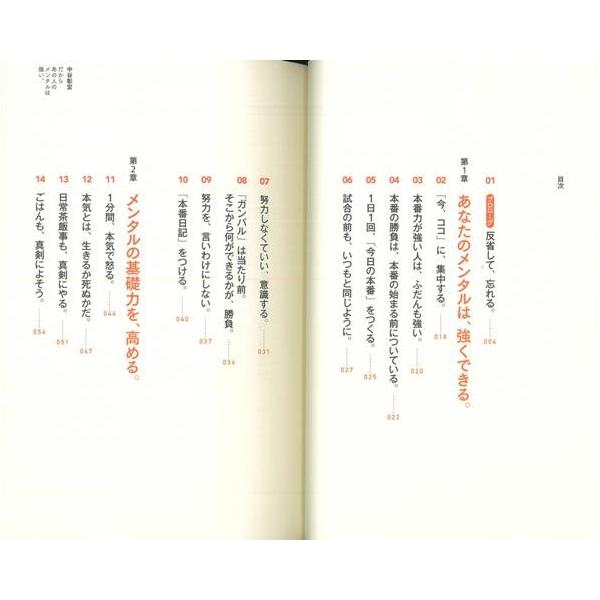 目次
01
プロローグ 反省して、忘れる。……004
第1章
あなたのメンタルは、強くできる。
02
「今、ココ」に、集中する。……018
03
本番力が強い人は、ふだんも強い。……020
04
本番の勝負は、本番の始まる前についている。……022
05
1日1回、「今日の本番」をつくる。……025
06
試合の前も、いつもと同じように。……027
07
努力しなくていい、意識する。……031
08
「ガンバル」は当たり前。
そこから何ができるかが、勝負。……034
09
努力を、言いわけにしない。……037
10
「本番日記」をつける。……040
第2章
メンタルの基礎力を、高める。
11
1分間、本気で怒る。……044
12
本気とは、生きるか死ぬかだ。……047
13
日常茶飯事も、真剣にやる。……051
14
ごはんも、真剣によそう。……054
中谷彰宏
だから
あの人の
メンタルは
強い。